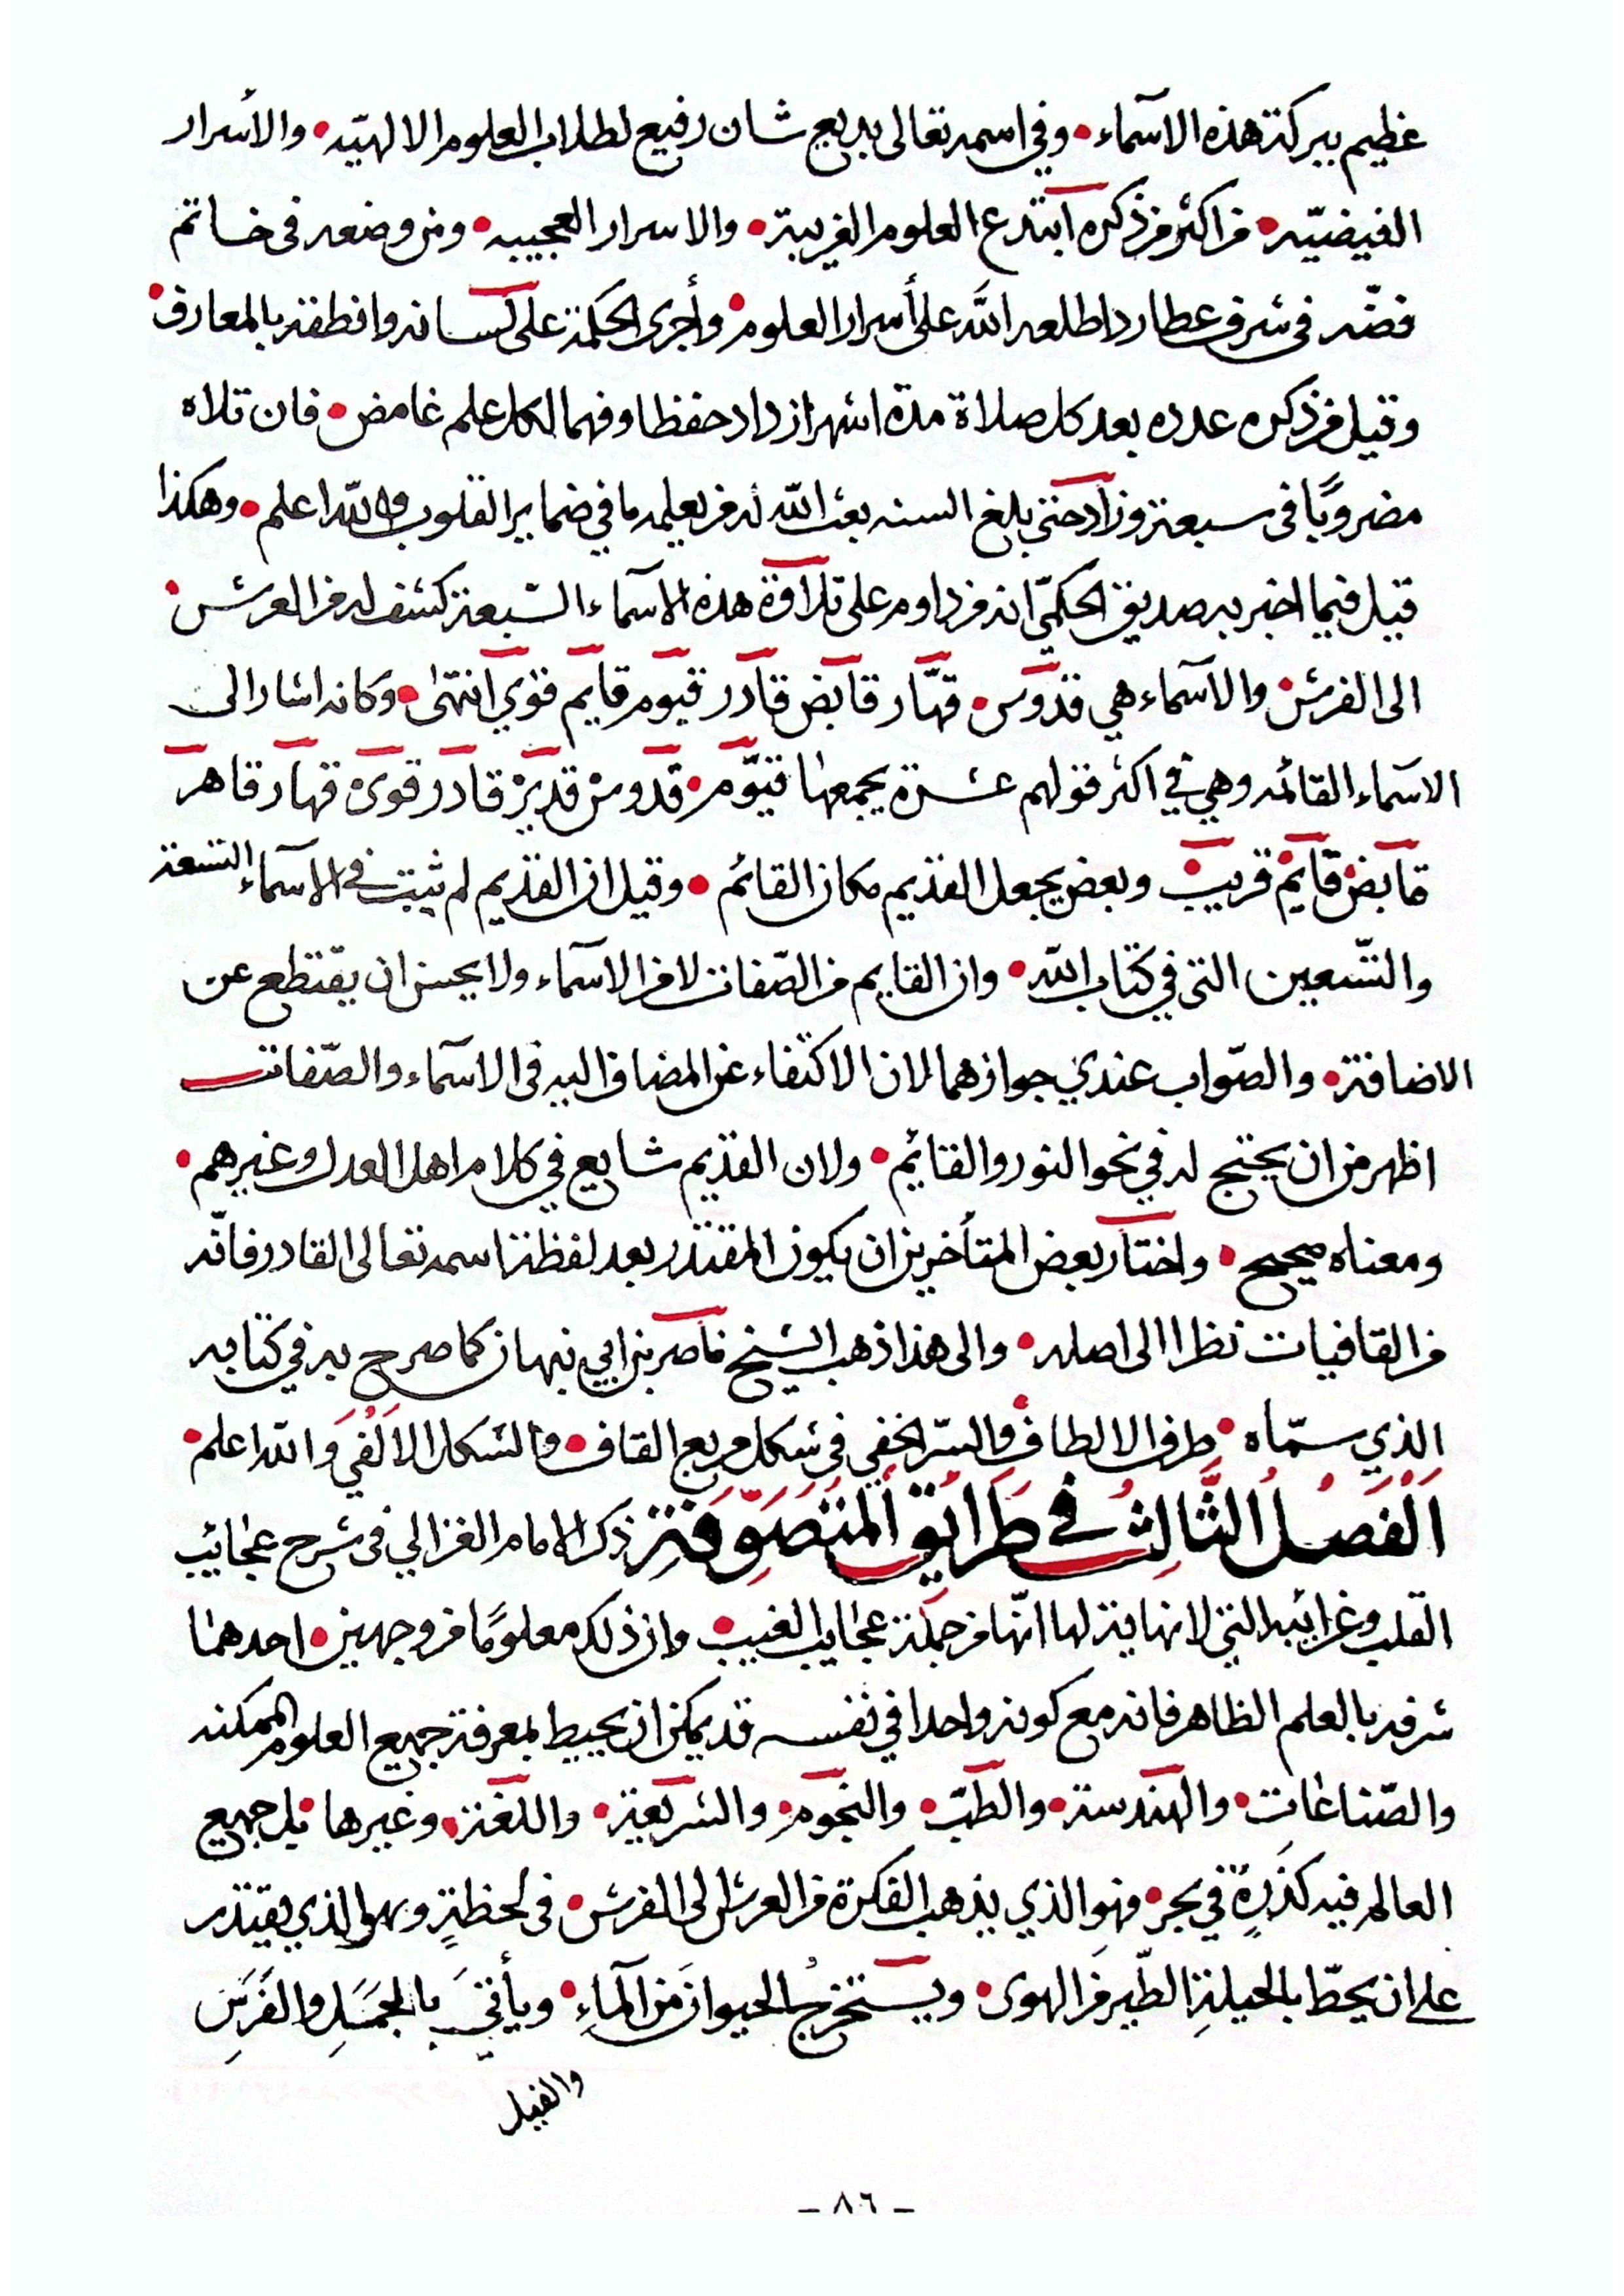 عظيم ببركة هذه الاسماء • وفي اسمه تعالى بديع شان رفيع لطلاب العلوم الالهيّه • والأسرار
الفيضيّه • من اكثر من ذكره ابتدع العلوم الغريبة • والاسرار العجيبه • ومن وضعه فى خاتم
فضّه فى شرف عطارد اطلعه الله على أسرار العلوم • وأجرى الحكمة على لسانه وانطقه بالمعارف •
وقيل من ذكره عدده بعد كل صلاة مدة اشهر ازداد حفظا وفهما لكل علم غامض • فان تلاه
مضروبًا فى سبعة وزاد حتى بلغ السنه بعث الله له من يعلمه ما في ضماير القلوب والله اعلم • وهكذا
قيل فيما اخبر به صديق الحكميّ انه من داوم على تلاوة هذه الاسماء السّبعة كشف له من العرش •
الى الفرش • والاسماء هي قدوس • قهّار قابض قادر قيوم قايم قوي انتهى • وكانه اشار الى
الاسماء القائمه وهي في اكثر قولهم عشرة يجمعها قيّوم • قدوس قدير قادر قوى قهار قاهر
قابض قايم قريب • وبعض يجعل القديم مكان القائم • وقيل ان القديم لم يثبت في الاسماء التسعة
والتّسعين التى في كتاب الله • وان القايم من الصّفات لا من الاسماء ولا يحسن ان يقتطع عن
الاضافة • والصّواب عندي جوازهما لان الاكتفاء عن المضاف اليه فى الاسماء والصّفات
اظهر من ان يحتج له في نحو النور والقائم • ولان القديم شايع في كلام اهل العدل وغيرهم •
ومعناه صحيح • واختار بعض المتأخرين ان يكون المقتدر بعد لفظة اسمه تعالى القادر فانّه
من القافيات نظرا الى اصله • والى هذا ذهب الشيخ ناصر بن ابي نبهان كما صرح به في كتابه
الذي سمّاه • طرف الالطاف والسّر الخفي في شكل مربع القاف • والشكل الالفي والله اعلم •
الفصل الثّالث في طرايق المتصوّفة ذكر الامام الغزالي فى شرح عجائب
القلب وغرائبه التي لا نهاية لها انّها من جملة عجايب الغيب • وان ذلك معلومًا من وجهين • احدهما
شرفه بالعلم الظاهر فانه مع كونه واحدا في نفسه قد يمكن ان يحيط بمعرفة جميع العلوم الممكنه
والصّناعات • والهندسة • والطبّ • والنجوم • والشريعة • واللغة • وغيرها • بل جميع
العالم فيه كذرةٍ في بحر • فهو الذي يذهب الفكرة من العرش الى الفرش • فى لحظةٍ وهو الذي يقتدر
على ان يحطّ بالحيلةِ الطّير من الهوى • ويستخرج الحيوان من الماء • ويأتي بالجمل والفرس
والفيل
ـ ٨٦ ـ